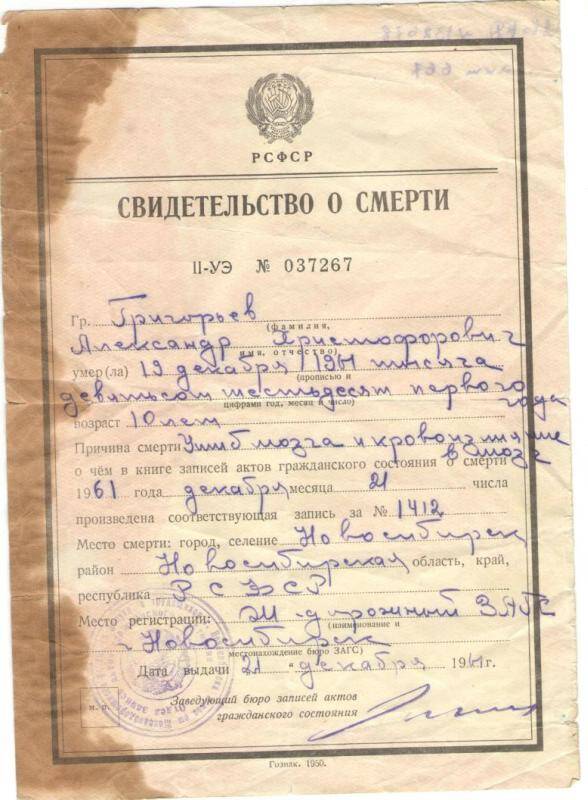 РСФСР
СВИДЕТЕЛЬСТВО О СМЕРТИ
II-УЭ № 037267
Гр. Григорьев
(фамилия,
Александр Христофорович
имя, отчество)
умер(ла) 19 декабря 1961 тысяча
(прописью и
девятьсот шестьдесят первого года
цифрами год, месяц и число)
возраст 10 лет
Причина смерти Ушиб мозга и кровоизлияние в мозг
о чём в книге записей актов гражданского состояния о смерти
1961 года декабря месяца 21 числа
произведена соответствующая запись за № 1412
Место смерти: город, селение Новосибирск
район Новосибирская область, край,
республика РСФСР
Место регистрации: Ж-дорожный ЗАГС
(наименование и
г Новосибирск
местонахождение бюро ЗАГС)
Дата выдачи 21 " декабря 1961г.
м. п.
Заведующий бюро записей актов
гражданского состояния
Гознак. 1950.